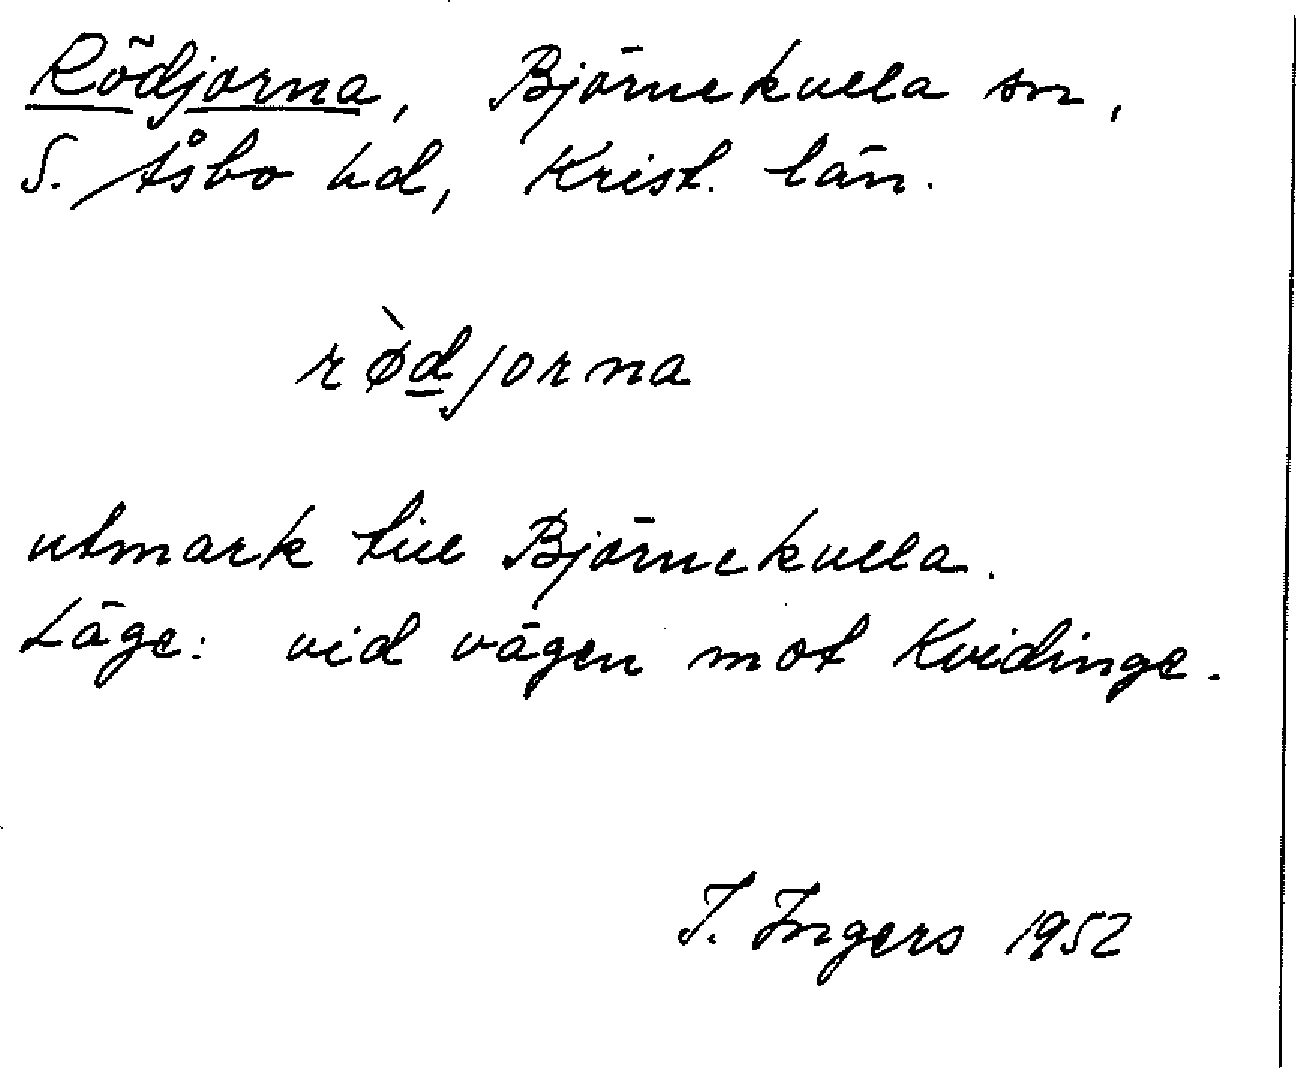 Rödjorna, Björnekulla sn,
S. Åsbo hd, Krist. län.
rø̀d̲jorna
utmark till Björnekulla.
Läge: vid vägen mot Kvidinge.
I. Ingers 1952